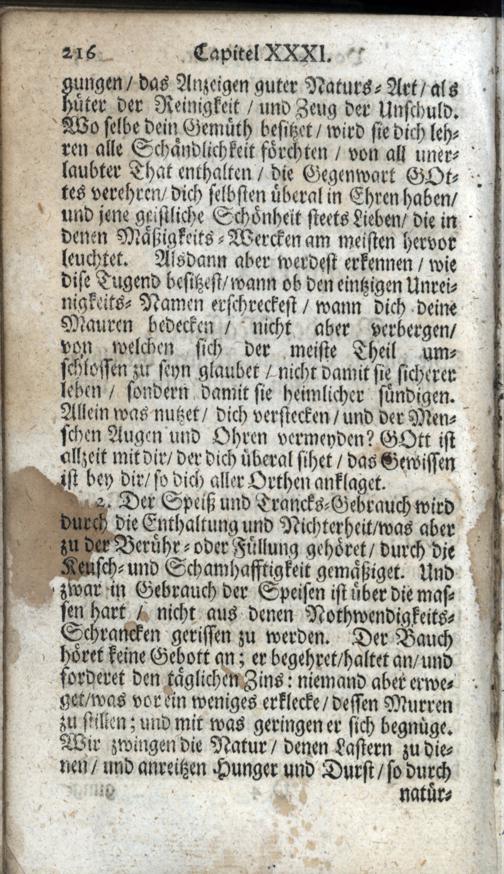 216 Capitel XXXI.
gungen / das Anzeigen guter Naturs-Art / als
hüter der Reinigkeit / und Zeug der Unschuld.
Wo selbe dein Gemüth besitzet / wird sie dich leh-
ren alle Schändlichkeit förchten / von all uner-
laubter That enthalten / die Gegenwart GOt-
tes verehren / dich selbsten überal in Ehren haben /
und jene geistliche Schönheit steets Lieben / die in
denen Mäßigkeits-Wercken am meisten hervor
leuchtet. Alsdann aber werdest erkennen / wie
dise Tugend besitzest / wann ob den eintzigen Unrei-
nigkeits-Namen erschreckest / wann dich deine
Mauren bedecken / nicht aber verbergen /
von welchen sich der meiste Theil um-
schlossen zu seyn glaubet / nicht damit sie sicherer
leben / sondern damit sie heimlicher sündigen.
Allein was nutzet / dich verstecken / und der Men-
schen Augen und Ohren vermeyden? GOtt ist
allzeit mit dir / der dich überal sihet / das Gewissen
ist bey dir / so dich aller Orthen anklaget.
2. Der Speiß und Trancks-Gebrauch wird
durch die Enthaltung und Nichterheit / was aber
zu der Berühr-oder Füllung gehöret / durch die
Keusch-und Schamhafftigkeit gemäßiget. Und
zwar in Gebrauch der Speisen ist über die mas-
sen hart / nicht aus denen Nothwendigkeits-
Schrancken gerissen zu werden. Der Bauch
höret keine Gebott an; er begehret / haltet an / und
forderet den täglichen Zins: niemand aber erwe-
get / was vor ein weniges erklecke / dessen Murren
zu stillen; und mit was geringen er sich begnüge.
Wir zwingen die Natur / denen Lastern zu die-
nen / und anreitzen Hunger und Durst / so durch
natür-